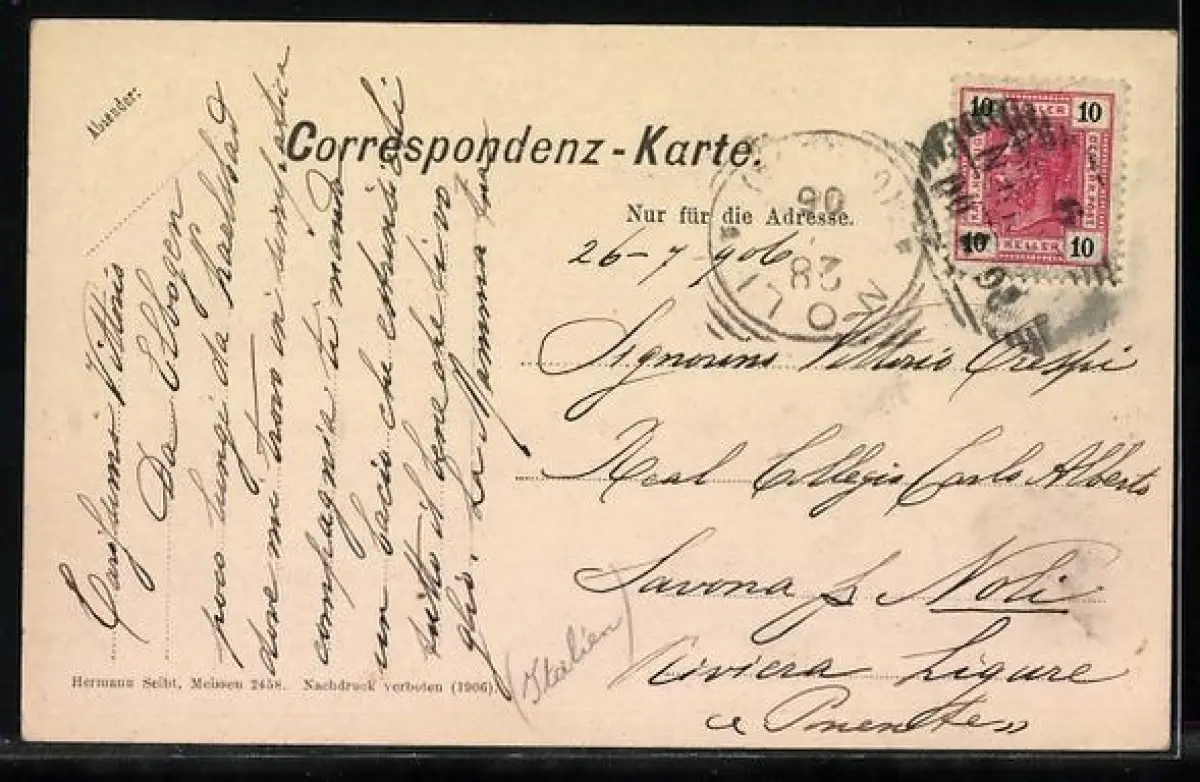 Absender:
Correspondenz-Karte.
Nur für die Adresse.
10 HELLER 10
10 HELLER 10
06
28
NOLI
26-7-906
Vittorio Crespi
Real Collegio Carlo Alberto
Savona Noli
Riviera Ligure
Ponente
(Italien)
Carissimo Vittorio
Da Elbogen
poco lungi da Karlsbad
dove mi trovo in
compagnia ti mando
un bacio che
tutto il bene che ti vo
glio. La Mamma tua
Hermann Seibt, Meissen 2458. Nachdruck verboten (1906).